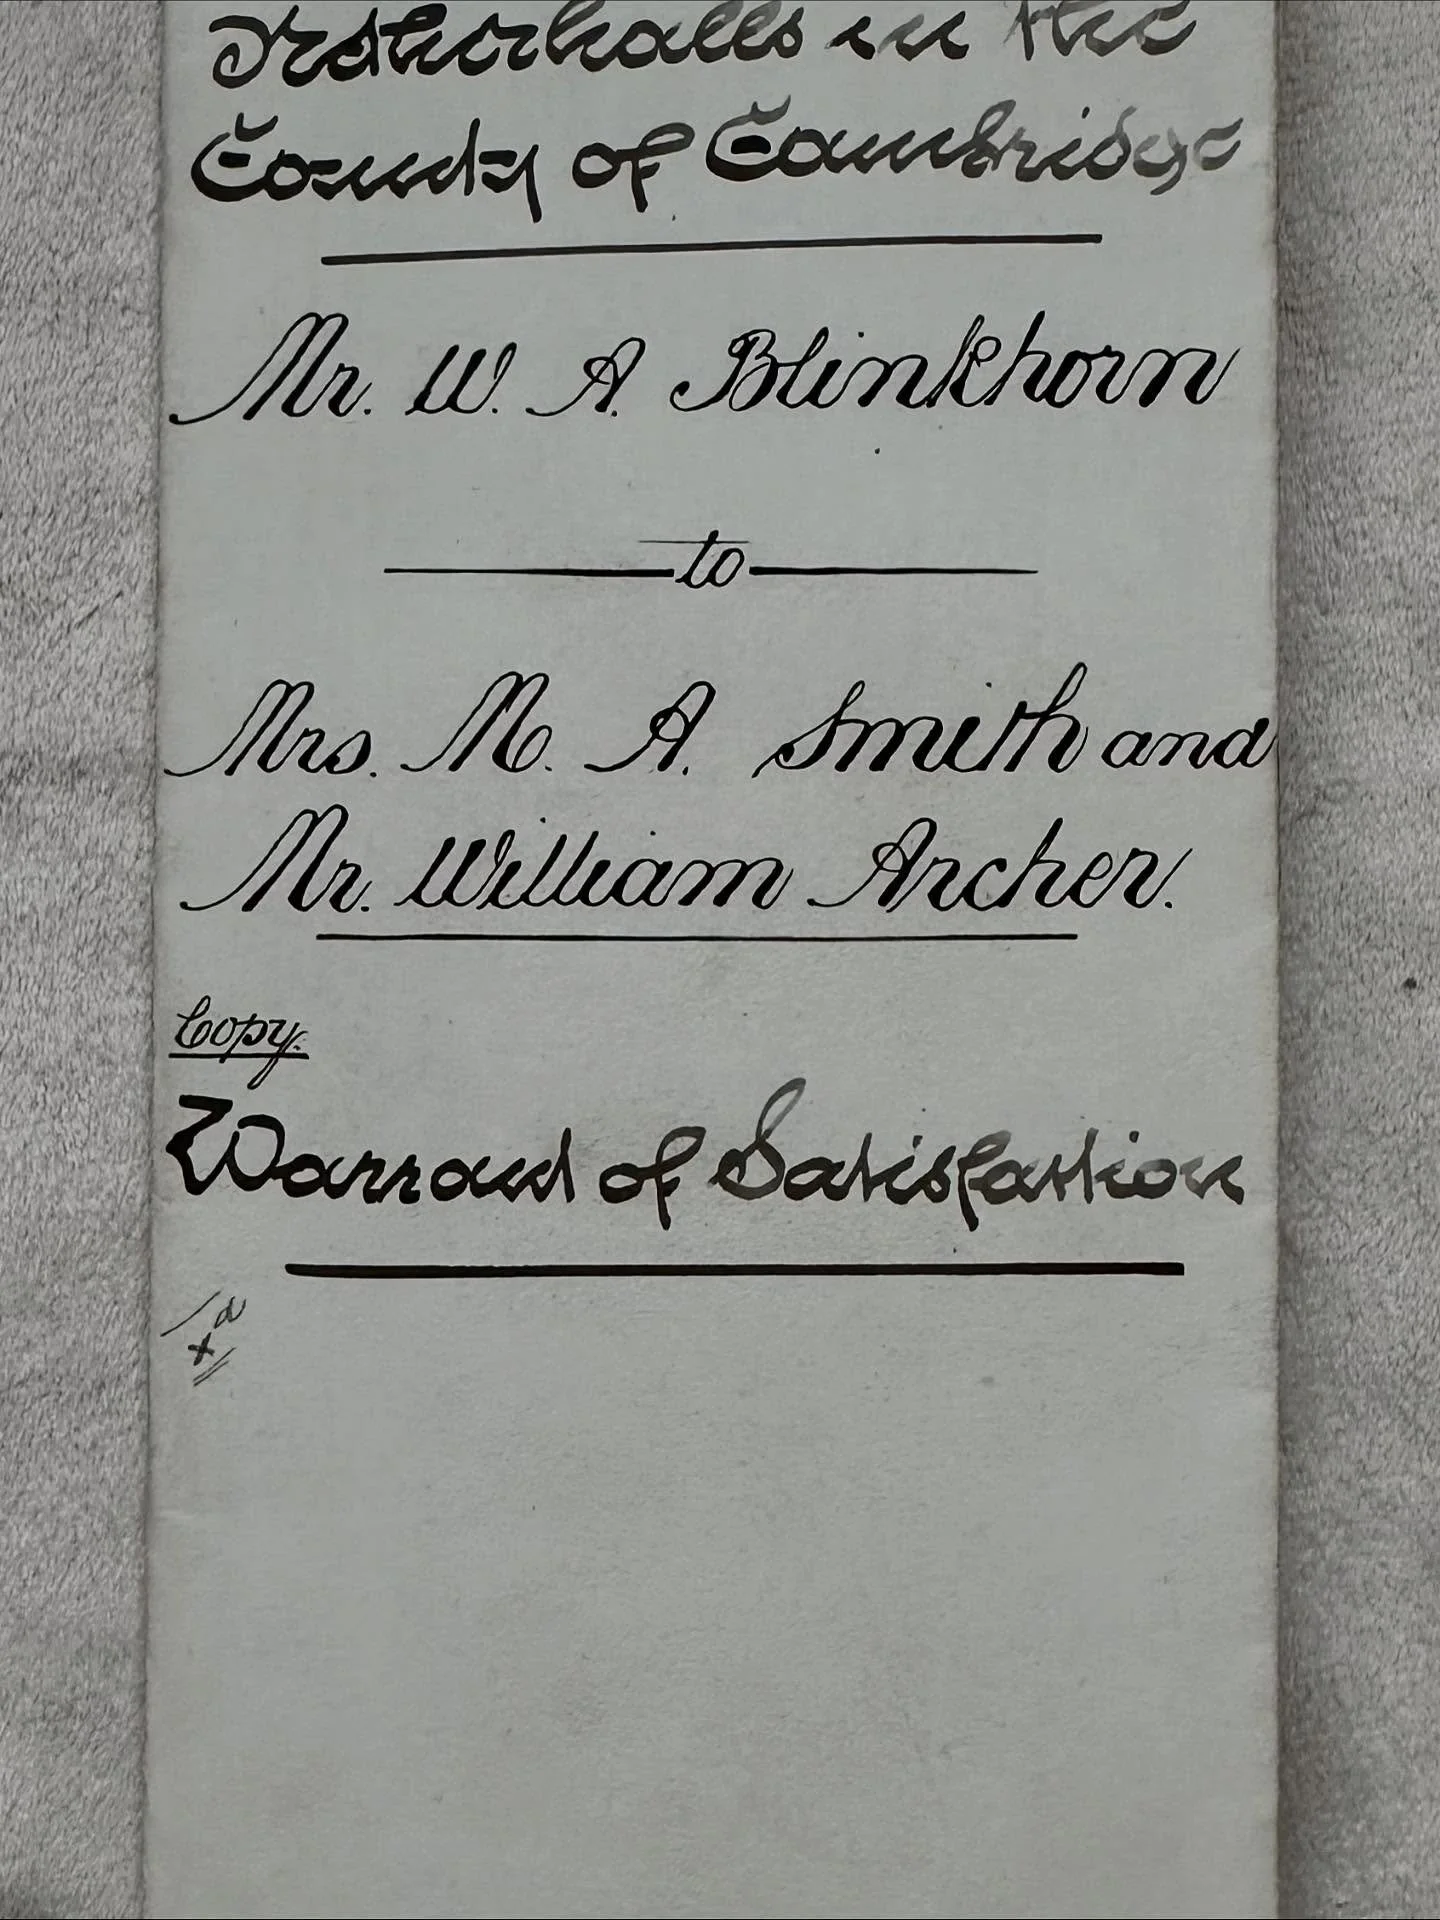 Netherhalls in the
County of Cambridge
Mr. W. A. Blinkhorn
to
Mrs. M. A. Smith and
Mr. William Archer.
Copy.
Warrant of Satisfaction